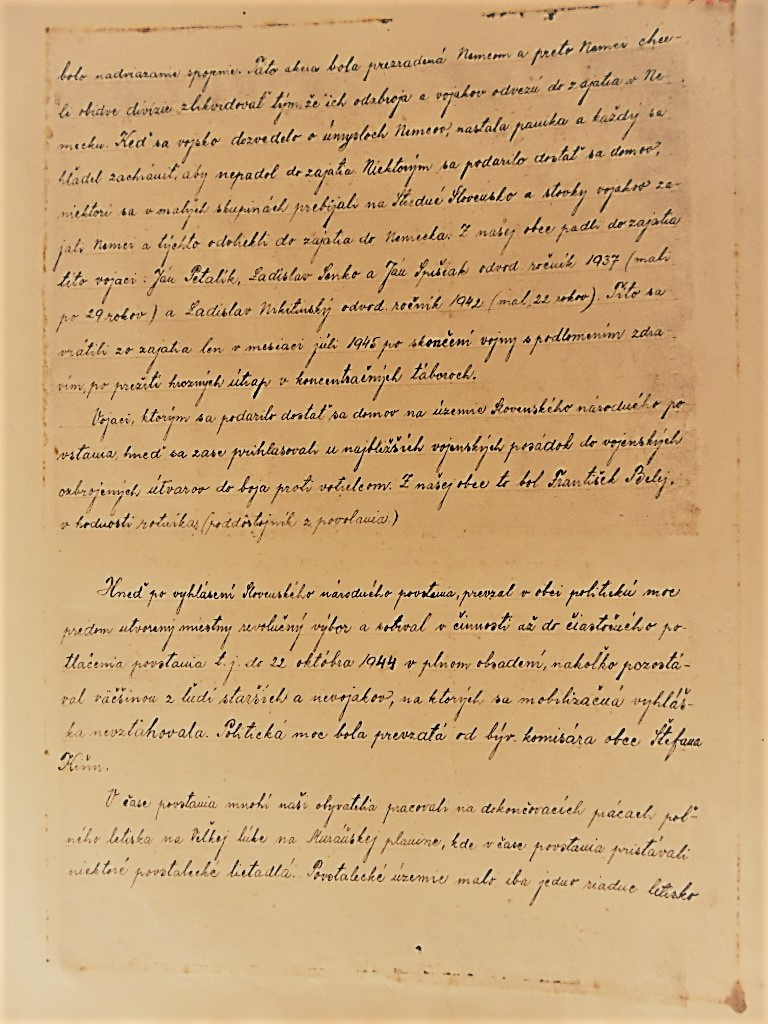 bolo nadviazanie spojenie. Táto akcia bola prezradená Nemcom a preto Nemci chce-
li obidve divízie zlikvidovať tým, že ich odzbroja a vojakov odvezú do zajatia v Ne-
mecku. Keď sa vojsko dozvedelo o úmysloch Nemcov, nastala panika a každý sa
hľadel zachrániť, aby nepadol do zajatia. Niektorým sa podarilo dostať sa domov,
niektorí sa v malých skupinách prebíjali na Stredné Slovensko a stovky vojakov za-
jali Nemci a týchto odvliekli do zajatia do Nemecka. Z našej obce padli do zajatia
títo vojaci: Ján Petalík, Ladislav Senko a Ján Spišiak odvod. ročník 1937 (mali
po 29 rokov) a Ladislav Nikitinský odvod. ročník 1942 (mal 22 rokov). Títo sa
vrátili zo zajatia len v mesiaci júli 1945 po skončení vojny s podlomením zdra-
vím, po prežití hrozných útrap v koncentračných táboroch.
Vojaci, ktorým sa podarilo dostať sa domov na územie Slovenského národného po
vstania, hneď sa zase prihlasovali u najbližších vojenských posádok do vojenských
ozbrojených útvarov do boja proti votrelcom. Z našej obce to bol František
v hodnosti rotníka, (poddôstojník z povolania.)
Hneď po vyhlásení Slovenského národného povstania, prevzal v obci politickú moc
predom utvorený miestny revolučný výbor a sotrval v činnosti až do čiastočného po-
tlačenia povstania t. j. do 22 októbra 1944 v plnom obsadení, nakoľko pozostá-
val väčšinou z ľudí starších a nevojakov, na ktorých sa mobilizačná vyhláš-
ka nevzťahovala. Politická moc bola prevzatá od býv. komisára obce Štefana

V čase povstania mnohí naši obyvatelia pracovali na dokončovacích prácach poľ-
ného letiska na Veľkej lúke na Muráňskej planine, kde v čase povstania pristávali
niektoré povstalecké lietadlá. Povstalecké územie malo iba jedno riadne letisko